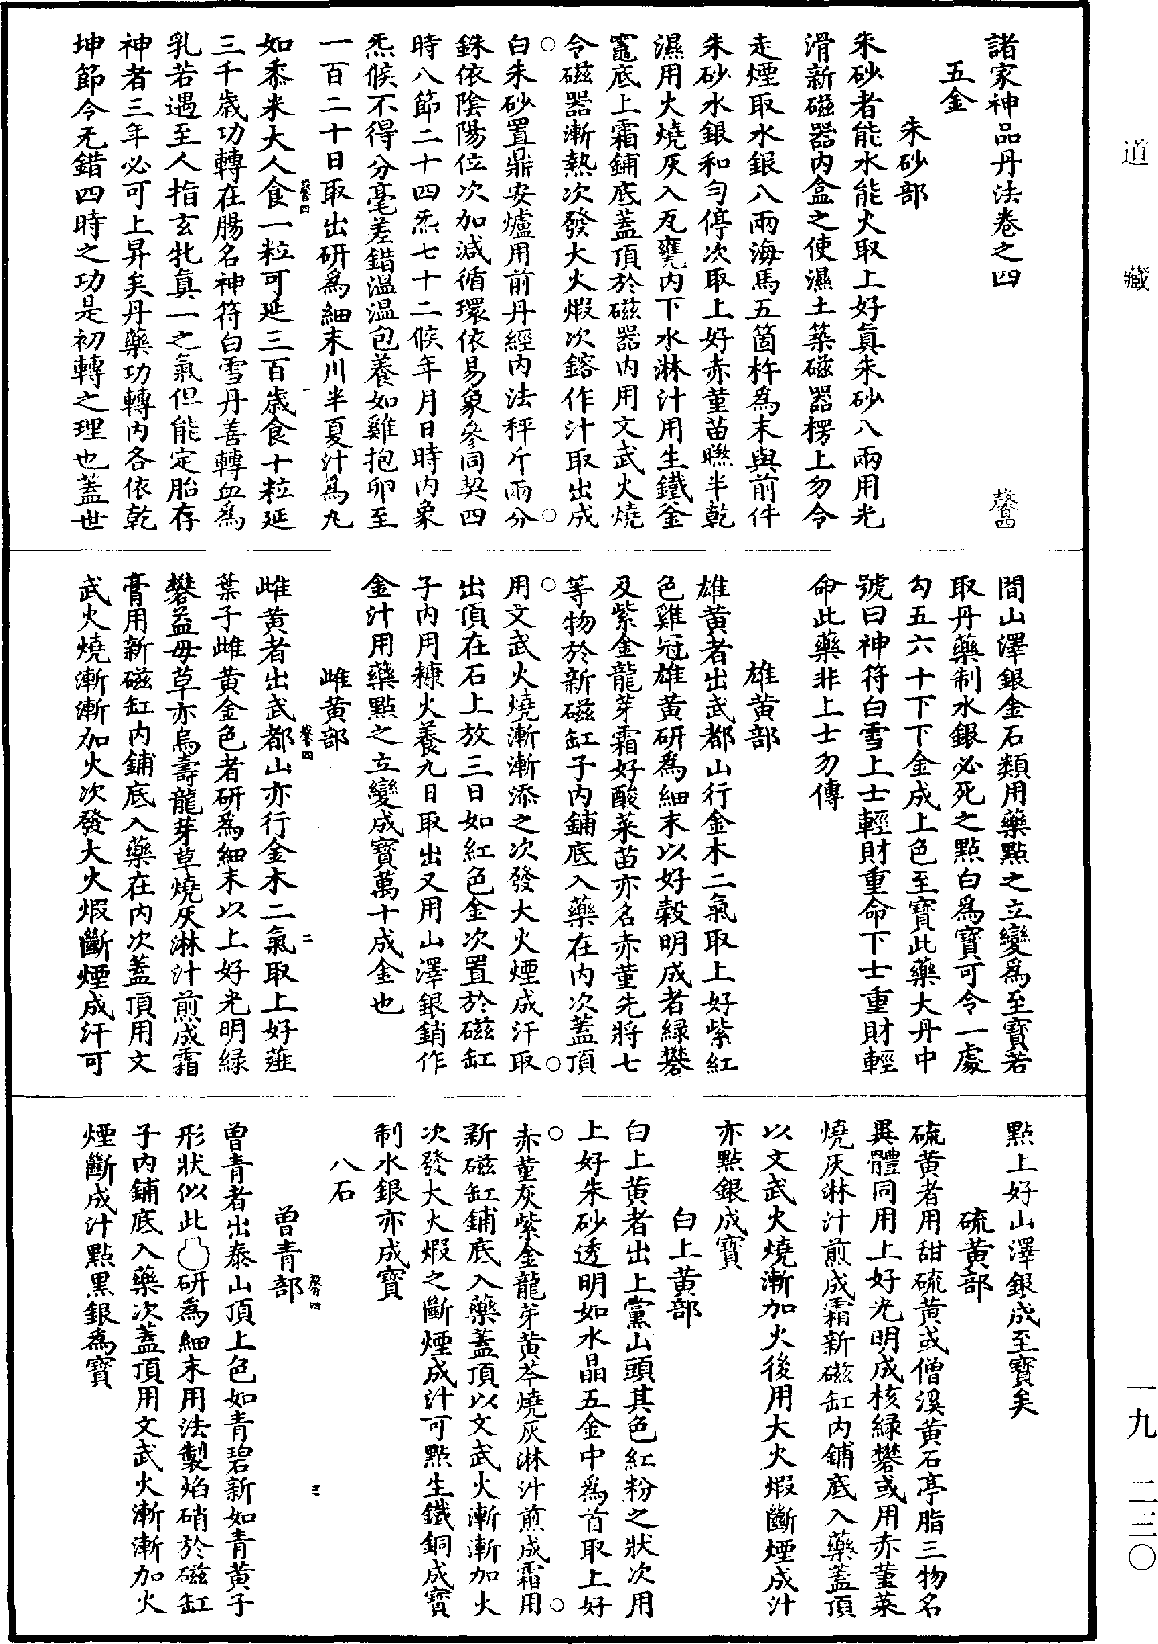 道藏
一九　二三〇
諸家神品丹法卷之四　馨四
五金
朱砂部
朱砂者能水能火取上好眞朱砂八兩用光
滑新磁器內盒之使濕土築磁器楞上勿令
走煙取水銀八兩海馬五箇杵爲末與前件
朱砂水銀和勻停次取上好赤堇苗㬠半乾
濕用火燒灰入瓦甕內下水淋汁用生鐵釜
竈底上霜鋪底蓋頂於磁器內用文武火燒
令磁器漸熱次發大火煆次鎔作汁取出成
白朱砂置鼎安爐用前丹經內法秤斤兩分
銖依陰陽位次加減循環依易象參同契四
時八節二十四炁七十二候年月日時內象
炁候不得分毫差錯溫溫包養如雞抱卵至
一百二十日取出研爲細末川半夏汁爲丸
如黍米大人食一粒可延三百歲食十粒延
三千歲功轉在腸名神符白雪丹善轉血爲
乳若遇至人指玄牝眞一之氣但能定胎存
神者三年必可上昇矣丹藥功轉內各依乾
坤節令无錯四時之功是初轉之理也蓋世
間山澤銀金石類用藥點之立變爲至寶若
取丹藥制水銀必死之點白爲寶可令一處
勾五六十下下金成上色至寶此藥大丹中
號曰神符白雪上士輕財重命下士重財輕
命此藥非上士勿傳
雄黃部
雄黃者出武都山行金木二氣取上好紫紅
色雞冠雄黃研爲細末以好穀明成者綠礬
及紫金龍芽霜好酸菜苗亦名赤堇先將七
等物於新磁缸子內鋪底入藥在內次蓋頂
用文武火燒漸漸添之次發大火煙成汗取
出頂在石上放三日如紅色金次置於磁缸
子內用糠火養九日取出又用山澤銀銷作
金汁用藥點之立變成寶萬十成金也
雌黃部
雌黃者出武都山亦行金木二氣取上好莊
葉子雌黃金色者研爲細末以上好光明綠
礬益母草亦烏壽龍芽草燒灰淋汁煎成霜
膏用新磁缸內鋪底入藥在內次蓋頂用文
武火燒漸漸加火次發大火煆斷煙成汗可
點上好山澤銀成至寶矣
硫黃部
硫黃者用甜硫黃或僧溪黃石亭脂三物名
異體同用上好光明成核綠礬或用赤堇菜
燒灰淋汁煎成霜新磁缸內鋪底入藥蓋頂
以文武火燒漸加火後用大火煆斷煙成汁
亦點銀成寶
白上黃部
白上黃者出上黨山頭其色紅粉之狀次用
上好朱砂透明如水晶五金中爲首取上好
赤堇灰紫金龍芽黃芩燒灰淋汁煎成霜用
新磁缸鋪底入藥蓋頂以文武火漸漸加火
次發大火煆之斷煙成汁可點生鐵銅成寶
制水銀亦成寶
八石
曾青部
曾青者出泰山頂上色如青碧新如青黃子
形狀似此研爲細末用法製焰硝於磁缸
子內鋪底入藥次蓋頂用文武火漸漸加火
煙斷成汁點黑銀爲寶